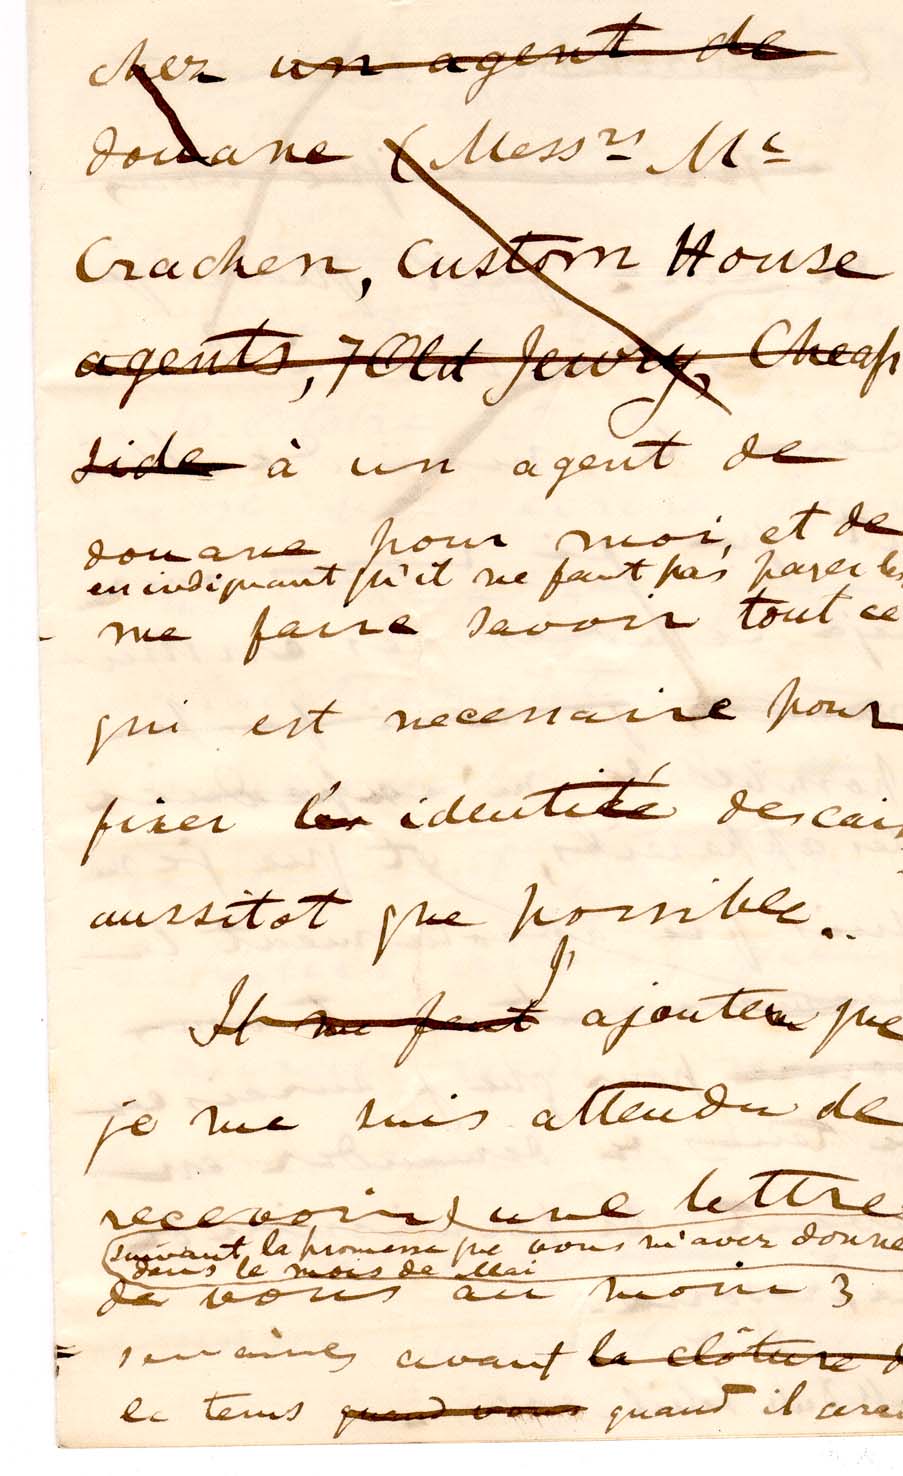 chez un agent de
douane (Messrs Mc
Cracken, Custom House
agents, 7 Old Jewry, Cheap
side à un agent de
douane pour moi, et de
en indiquant qu'il ne faut pas payer les
me faire savoir tout ce
qui est necessaire pour
fixer l' identité des cais
aussitot que possible.
Il me faut j' ajouter que
je me suis attendu de
recevoir une lettre
suivant la promesse que vous m'avez donne
dans le mois de Mai
de vous au moin 3
semaines avant la clôture d
le tems quand vous quand il